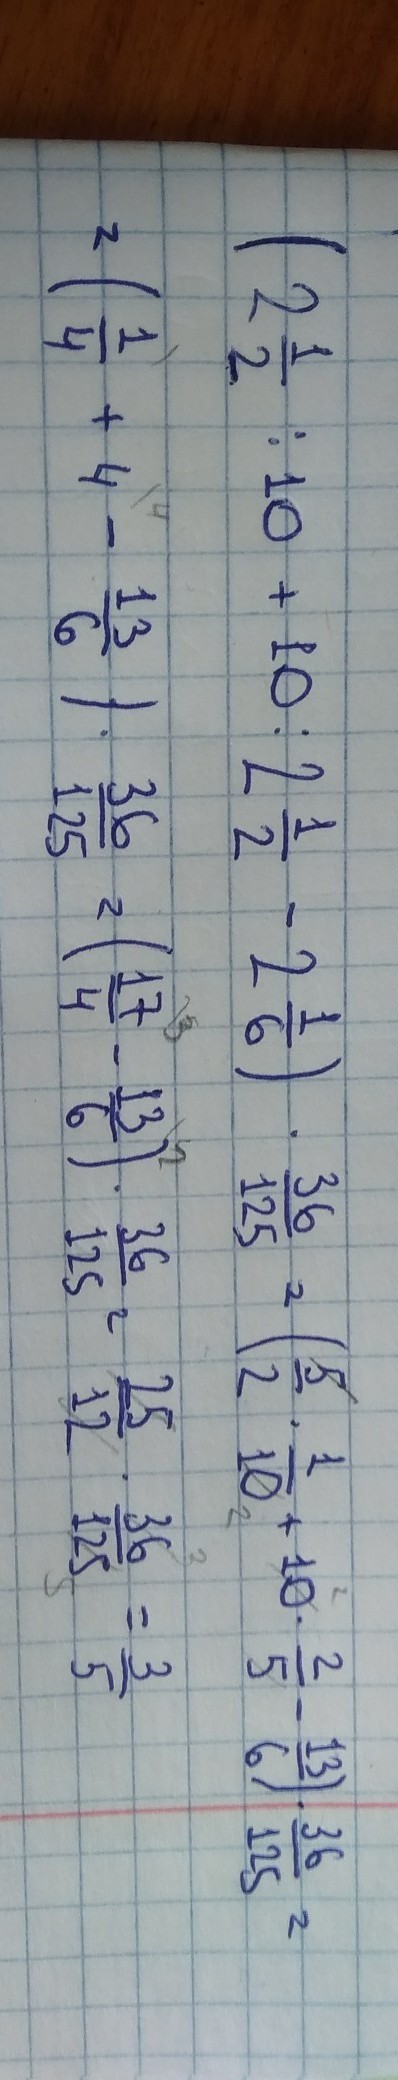 (2 1/2 : 10 + 10 : 2 1/2 - 2 1/6) · 36/125 = (5/2 · 1/10 + 10 · 2/5 - 13/6) · 36/125 =
= (1/4 + 4 - 13/6) · 36/125 = (17/4 - 13/6) · 36/125 = 25/12 · 36/125 = 3/5